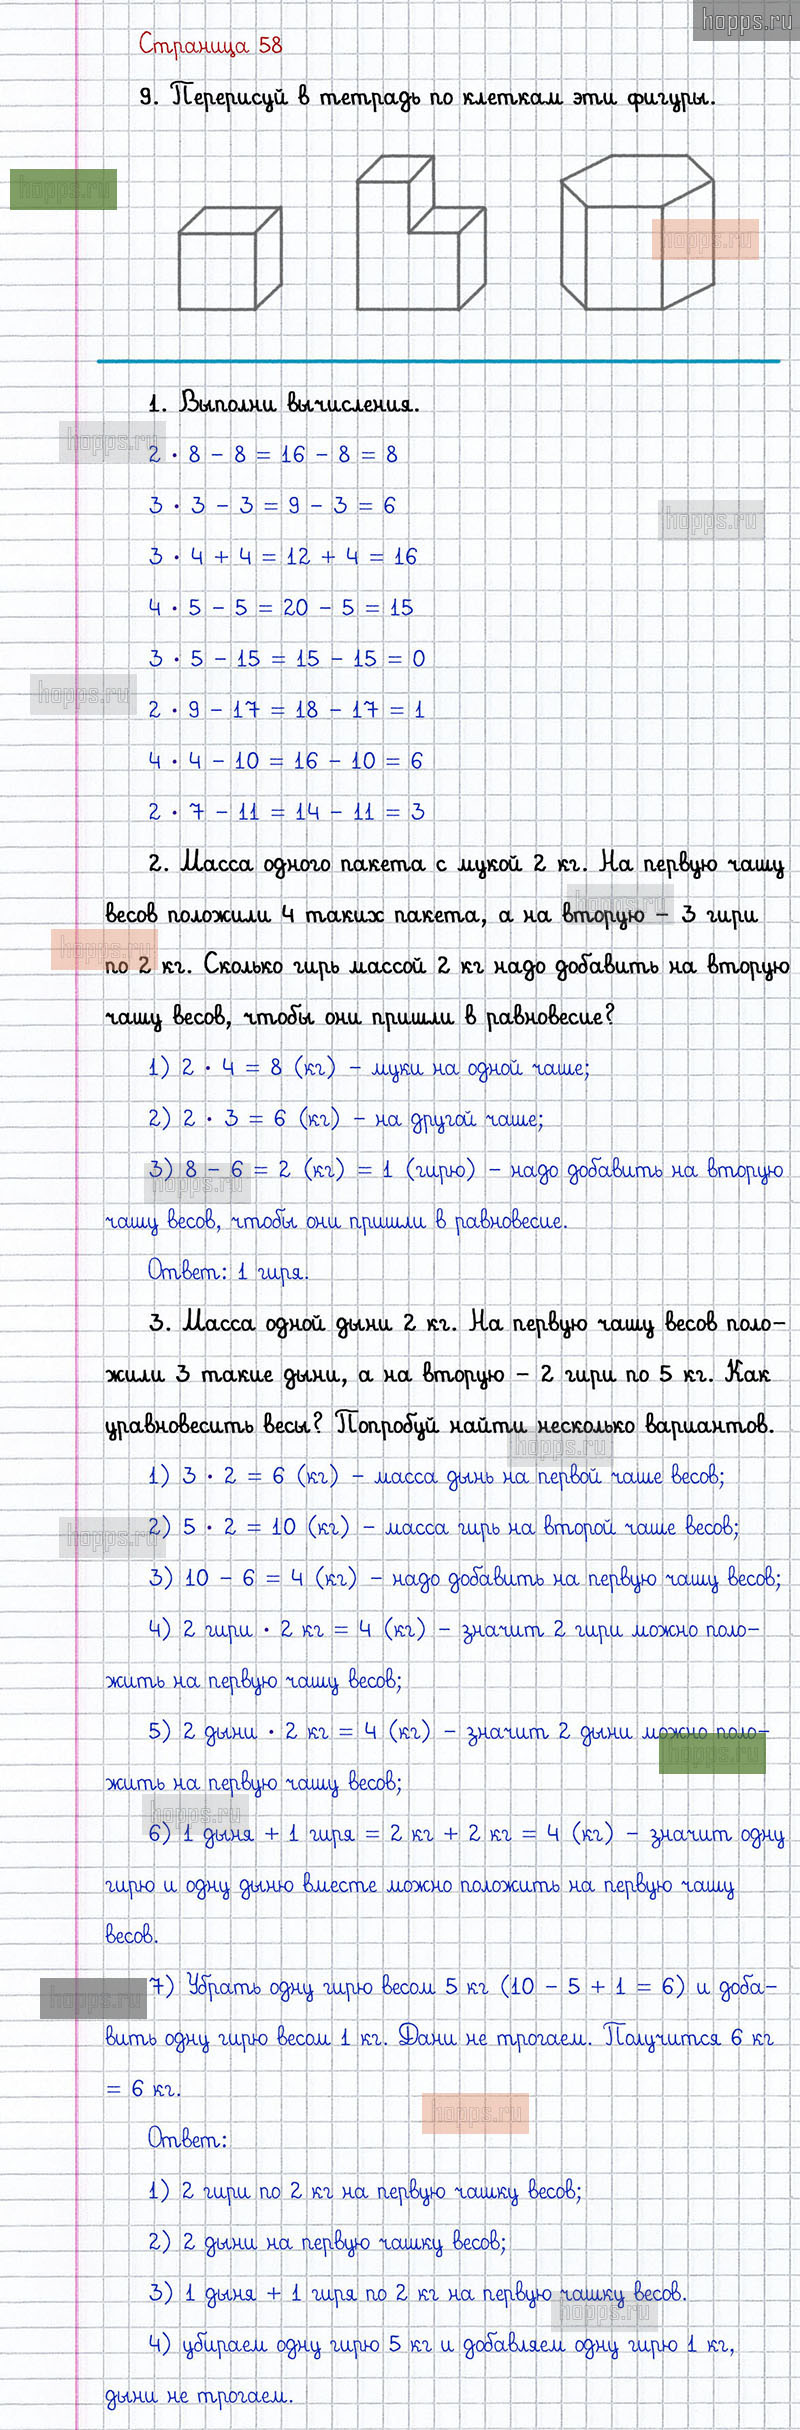 hopps.ru
Страница 58
9. Перерисуй в тетрадь по клеткам эти фигуры.
hopps.ru
hopps.ru
1. Выполни вычисления.
hopps.ru
2 · 8 – 8 = 16 – 8 = 8
3 · 3 – 3 = 9 – 3 = 6
hopps.ru
3 · 4 + 4 = 12 + 4 = 16
4 · 5 – 5 = 20 – 5 = 15
3 · 5 – 15 = 15 – 15 = 0
hopps.ru
2 · 9 – 17 = 18 – 17 = 1
4 · 4 – 10 = 16 – 10 = 6
2 · 7 – 11 = 14 – 11 = 3
2. Масса одного пакета с мукой 2 кг. На первую чашу
hopps.ru
весов положили 4 таких пакета, а на вторую – 3 гири
hopps.ru
по 2 кг. Сколько гирь массой 2 кг надо добавить на вторую
чашу весов, чтобы они пришли в равновесие?
1) 2 · 4 = 8 (кг) – муки на одной чаше;
2) 2 · 3 = 6 (кг) – на другой чаше;
3) 8 – 6 = 2 (кг) = 1 (гирю) – надо добавить на вторую
hopps.ru
чашу весов, чтобы они пришли в равновесие.
Ответ: 1 гиря.
3. Масса одной дыни 2 кг. На первую чашу весов поло–
жили 3 такие дыни, а на вторую – 2 гири по 5 кг. Как
уравновесить весы? Попробуй найти несколько вариантов.
hopps.ru
1) 3 · 2 = 6 (кг) – масса дынь на первой чаше весов;
hopps.ru
2) 5 · 2 = 10 (кг) – масса гирь на второй чаше весов;
3) 10 – 6 = 4 (кг) – надо добавить на первую чашу весов;
4) 2 гири · 2 кг = 4 (кг) – значит 2 гири можно поло–
жить на первую чашу весов;
5) 2 дыни · 2 кг = 4 (кг) – значит 2 дыни можно поло–
hopps.ru
жить на первую чашу весов;
hopps.ru
6) 1 дыня + 1 гиря = 2 кг + 2 кг = 4 (кг) – значит одну
гирю и одну дыню вместе можно положить на первую чашу
весов.
hopps.ru
7) Убрать одну гирю весом 5 кг (10 – 5 + 1 = 6) и доба–
вить одну гирю весом 1 кг. Дани не трогаем. Получится 6 кг
= 6 кг.
hopps.ru
Ответ:
1) 2 гири по 2 кг на первую чашку весов;
2) 2 дыни на первую чашку весов;
3) 1 дыня + 1 гиря по 2 кг на первую чашку весов.
hopps.ru
4) убираем одну гирю 5 кг и добавляем одну гирю 1 кг,
дыни не трогаем.